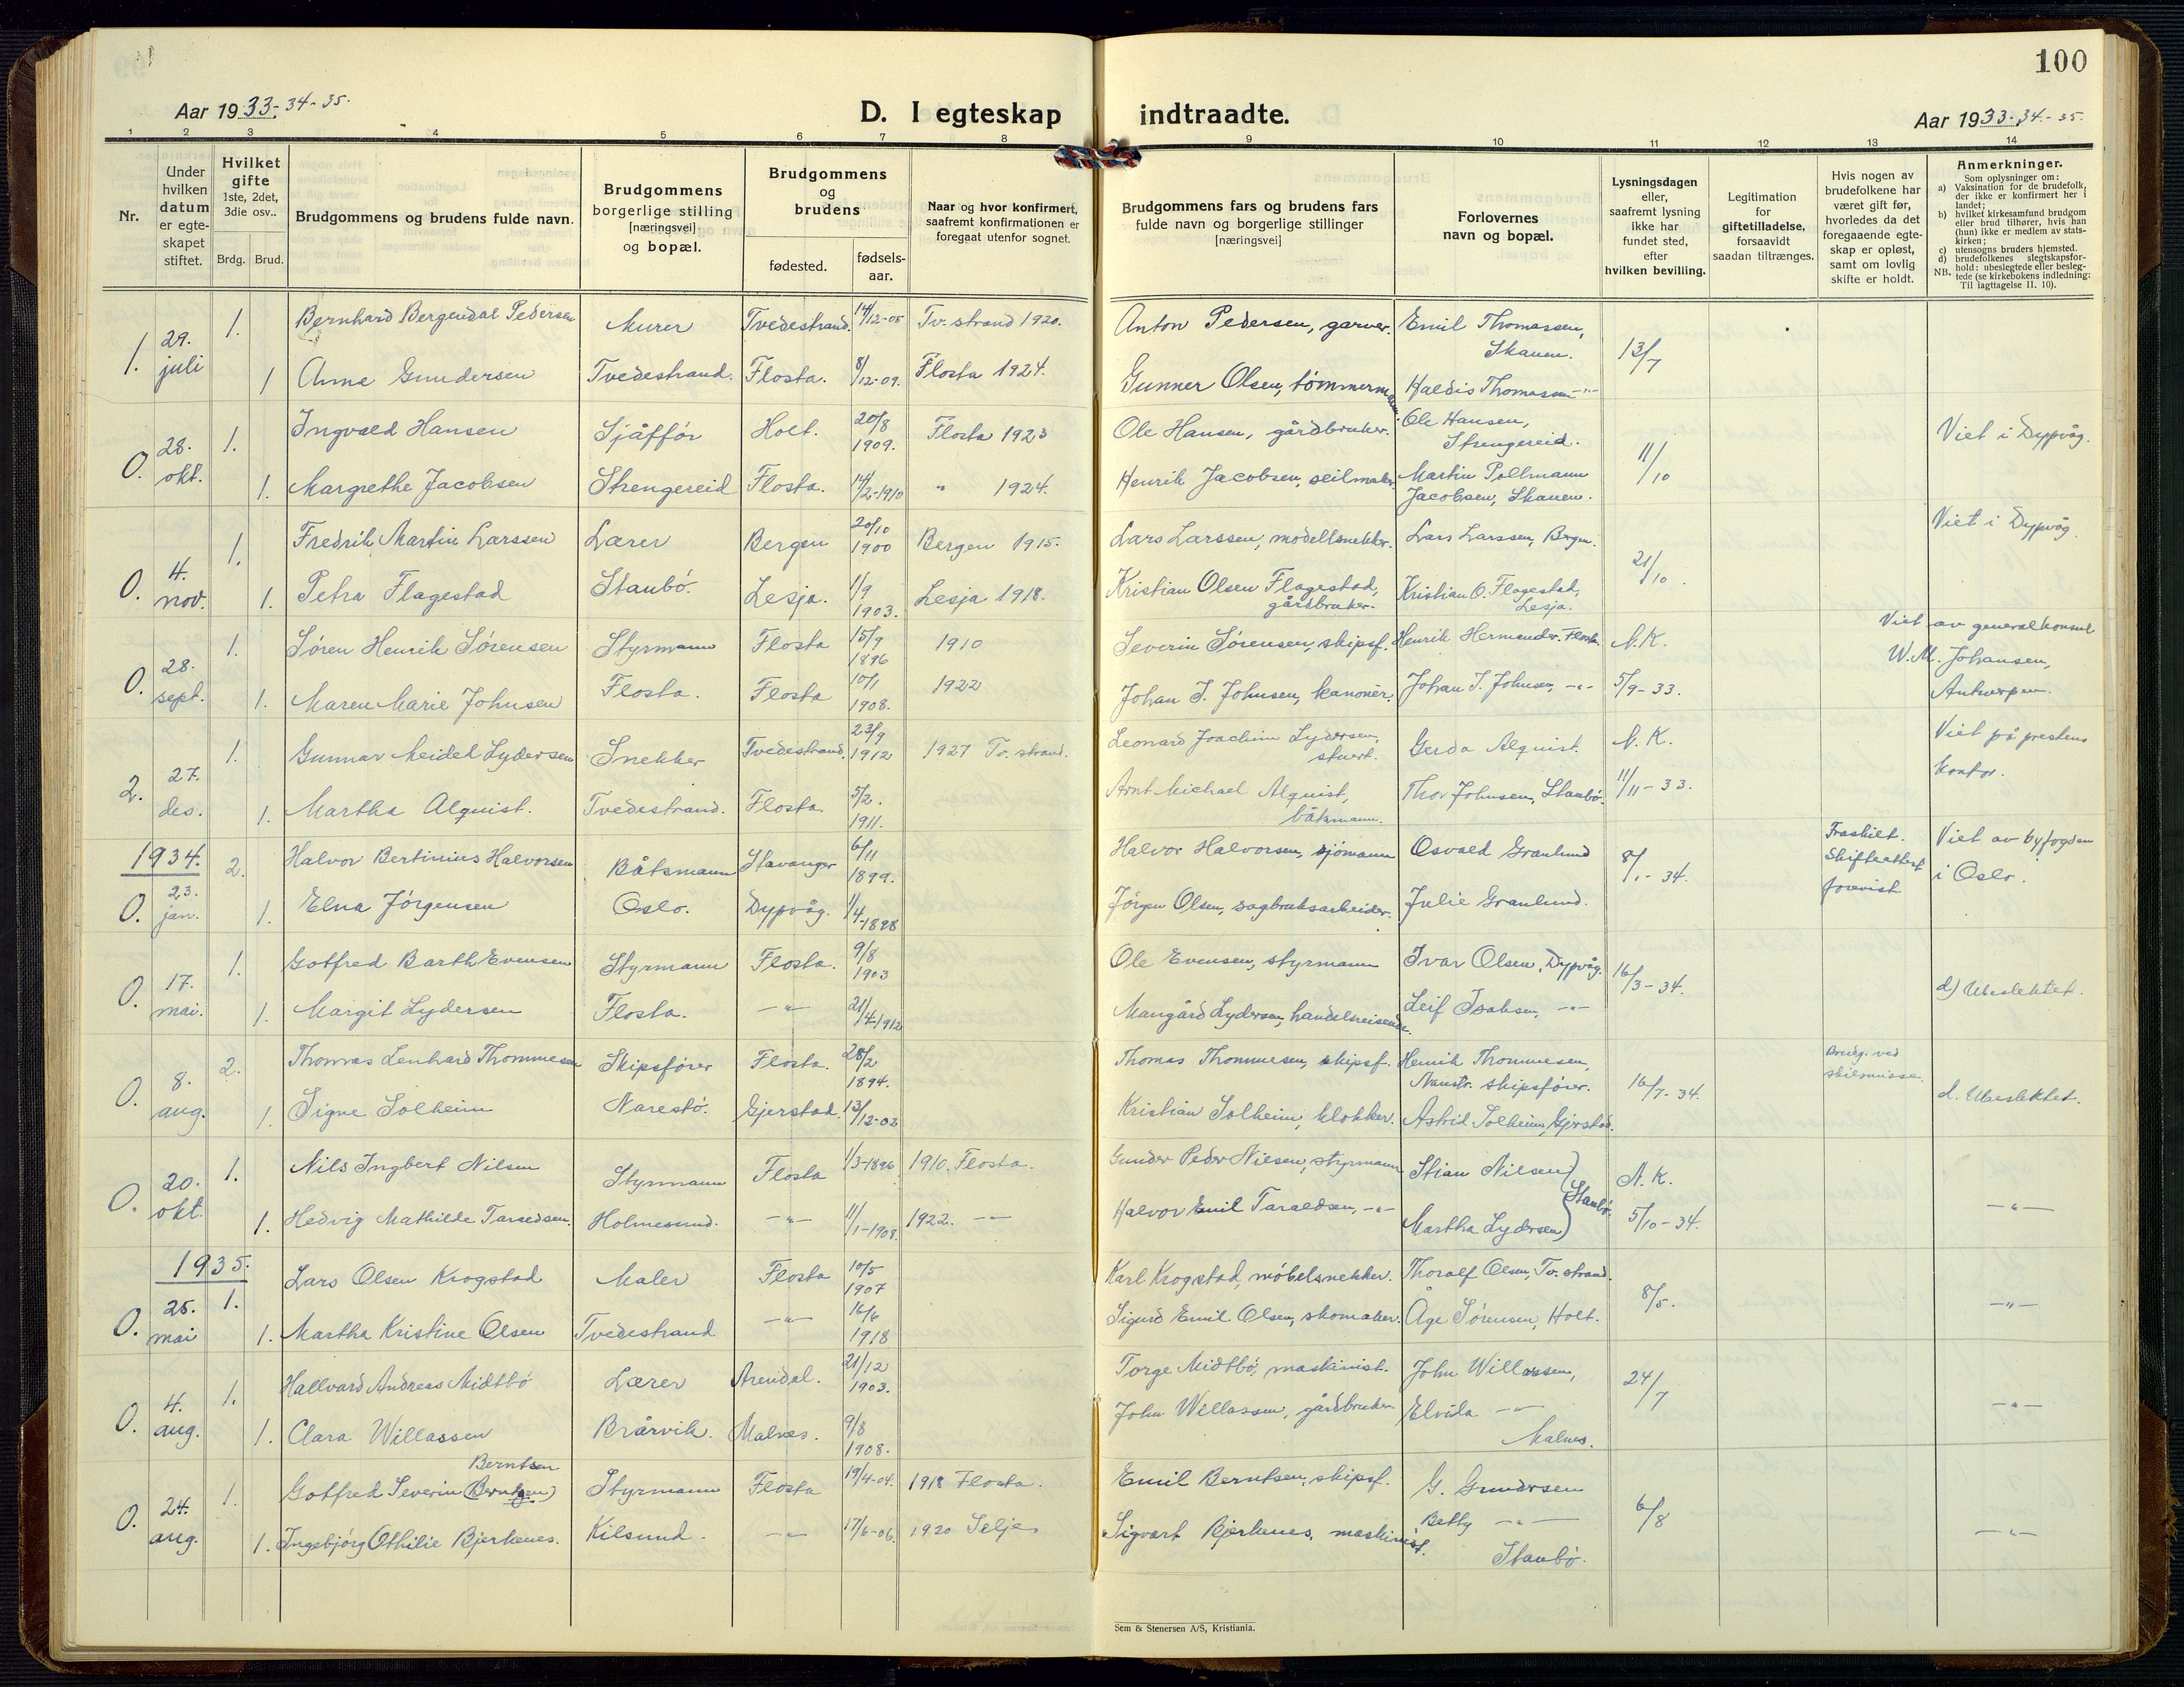 100
Aar 1933-34-35.
D. I egteskap indtraadte.
Aar 1933-34-35.
1 2 3 4 5 6 7 8 9 10 11 12 13 14
Nr.
Under hvilken datum er egteskapet stiftet.
Hvilket gifte 1ste, 2det, 3die osv..
Brdg. Brud.
Brudgommens og brudens fulde navn.
Brudgommens borgerlige stilling [næringsvei] og bopæl.
Brudgommens og brudens
fødested.
fødselsaar.
Naar og hvor konfirmert, saafremt konfirmationen er foregaat utenfor sognet.
Brudgommens fars og brudens fars fulde navn og borgerlige stillinger [næringsvei]
Forlovernes navn og bopæl.
Lysningsdagen eller, saafremt lysning ikke har fundet sted, efter hvilken bevilling.
Legitimation for giftetilladelse, forsaavidt saadan tiltrænges.
Hvis nogen av brudefolkene har været gift før, hvorledes da det foregaaende egteskap er opløst, samt om lovlig skifte er holdt.
Anmerkninger.
Som oplysninger om:
a) Vaksination for de brudefolk, der ikke er konfirmert her i landet;
b) hvilket kirkesamfund brudgom eller brud tilhører, hvis han (hun) ikke er medlem av statskirken;
c) utensogns bruders hjemsted.
d) brudefolkenes slegtskapsforhold: ubeslegtede eller beslegtede (se kirkebokens indledning:
NB. Til iagttagelse II. 10).
1. 29. juli 1. Bernhard Bergendal Pedersen Murer Tvedestrand. 14/12-05 Tv.strand 1920. Anton Pedersen, garver. Emil Thomassen, Skauen. 13/7
1 Anne Gundersen Tvedestrand. Flosta. 8/12-09. Flosta 1924. Gunner Olsen, tømmermann. Haldis Thomassen -"-
0. 28. okt. 1. Ingvald Hansen Sjåffør Holt. 20/8 1909. Flosta 1923 Ole Hansen, gårdbruker. Ole Hansen, Strengereid. 11/10 Viet i Dypvåg.
1. Margrethe Jacobsen Strengereid Flosta. 14/2-1910 " 1924. Henrik Jacobsen, seilmaker. Martin Pollmann Jacobsen, Skauen.
0. 4. nov. 1. Fredrik Martin Larssen Lærer Bergen 20/10 1900 Bergen 1915. Lars Larssen, modellsnekker. Lars Larssen, Bergen. 21/10. Viet i Dypvåg.
1. Petra Flagestad Staubø. Lesja. 1/9 1903. Lesja 1918. Kristian Olsen Flagestad, gårdbruker. Kristian O. Flagestad, Lesja.
0. 28. sept. 1. Søren Henrik Sørensen Styrmann Flosta 15/9 1896 1910 Severin Sørensen, skipsf. Henrik Hermansen, Flosta. N.K. Viet av generalkonsul
1. Maren Marie Johnsen Flosta. Flosta 10/1 1908. 1922 Johan J. Johnsen, kanonér. Johan J. Johnsen, -"- 5/9-33. W.M. Johansen, Antwerpen.
2. 27. des. 1. Gunnar Meidel Lydersen Snekker Tvedestrand. 23/9 1912 1927 Tv.strand. Leonard Joachim Lydersen, stuert. Gerda Alquist. N.K. Viet på prestens kontor.
1. Martha Alquist. Tvedestrand. Flosta. 5/2. 1911. Arnt Michael Alquist, båtsmann. Thor Johnsen, Staubø. 11/11-33.
1934.
0. 23. jan. 2. Halvor Bertinius Halvorsen Båtsmann Stavanger 6/11 1899. Halvor Halvorsen, sjömann Osvald Granlund 8/1-34. Fraskilt. Skifteattest forevist Viet av byfogden i Oslo.
1. Elna Jörgensen Oslo. Dypvåg. 1/4-1898 Jörgen Olsen, sagbruksarbeider. Julie Granlund.
0. 17. mai. 1. Gotfred Barth Evensen Styrmann Flosta. 9/8 1903 Ole Evensen, styrmann Ivar Olsen, Dypvåg. 16/3-34. d) Ubeslektet.
1. Margit Lydersen Flosta. -"- 21/4-1912 Mangård Lydersen, handelsreisende. Leif Isaksen, -"-
0. 8. aug. 2. Thomas Lenhard Thommesen Skipsfører Flosta. 28/2 1894. Thomas Thommesen, skipsf. Henrik Thommesen, Narestø. skipsfører. 16/7-34. Brudg. ved skilsmisse. d. Ubeslektet.
1. Signe Solheim Narestö. Gjerstad. 13/12-02 Kristian Solheim, klokker. Astrid Solheim, Gjerstad.
0. 20. okt. 1. Nils Ingbert Nilsen Styrmann Flosta 1/3-1896 1910. Flosta. Gunder Peder Nilsen, styrmann Stian Nilsen } Staubø. N.K.
1. Hedvig Mathilde Taraldsen. Holmesund. -"- 11/1-1908. 1922. -"- Halvor Emil Taraldsen, -"- Martha Lydersen 5/10-34. -"-
1935.
0. 25. mai 1. Lars Olsen Krogstad Maler Flosta 10/5 1907 Karl Krogstad, möbelsnekker. Thoralf Olsen, Tv.strand. 8/5. -"-
1. Martha Kristine Olsen Tvedestrand -"- 16/6 1918 Sigurd Emil Olsen, skomaker. Åge Sørensen, Holt.
0. 4. aug. 1. Hallvard Andreas Midtbö Lærer Arendal. 21/12 1903. Torge Midtbö, maskinist. John Willassen, 24/7 -"-
1. Clara Willassen Brårvik. Malnes. 9/8 1908. John Willassen, gårdbruker. Elvida -"- Malnes.
0. 24. aug. 1. Gotfred Severin (Berntzen) Berntsen Styrmann Flosta 19/4-04. 1918 Flosta. Emil Berntsen, skipsf. G. Gundersen 6/8 -"-
1. Ingebjørg Othilie Bjerkenes. Kilsund. -"- 17/6-06. 1920 Selje. Sigvart Bjerkenes, maskinist. Betty -"- Staubø.
Sem & Stenersen A/S, Kristiania.